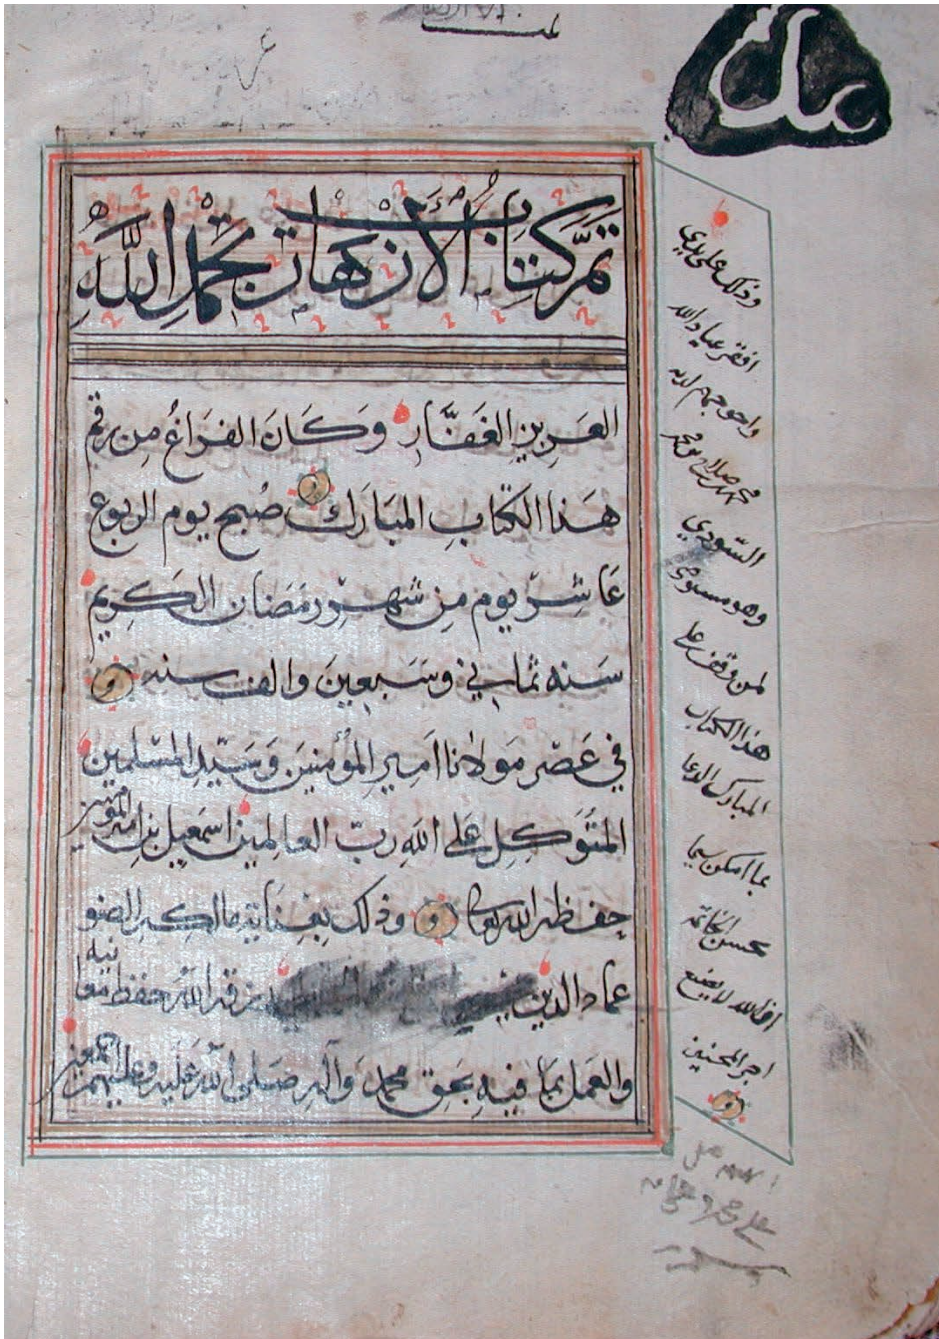 تم كتاب الازهار بحمد الله
العزيز الغفار وكان الفراغ من رقم
هذا الكتاب المبارك صبح يوم الربوع
عاشر يوم من شهر رمضان الكريم
سنه ثماني وسبعين والف سنه
في عصر مولانا امير المؤمنين وسيد المسلمين
المتوكل على الله رب العالمين اسمعيل بن امير المؤمنين
حفظه الله تعالى وذلك بعناية مالكه الصنو
عماد الدين رزقه الله حفظ معانيه
والعمل بما فيه بحق محمد وآله صلى الله عليه وعليهم اجمعين
وذلك على يدي
افقر عباد الله
واحوجهم اليه
محمد صلاح محمد
السودي
وهو مستوصي
لمن وقف على
هذا الكتاب
المبارك الدعا
بما امكن سيما
بحسن الخاتمه
ان الله لا يضيع
اجر المحسنين